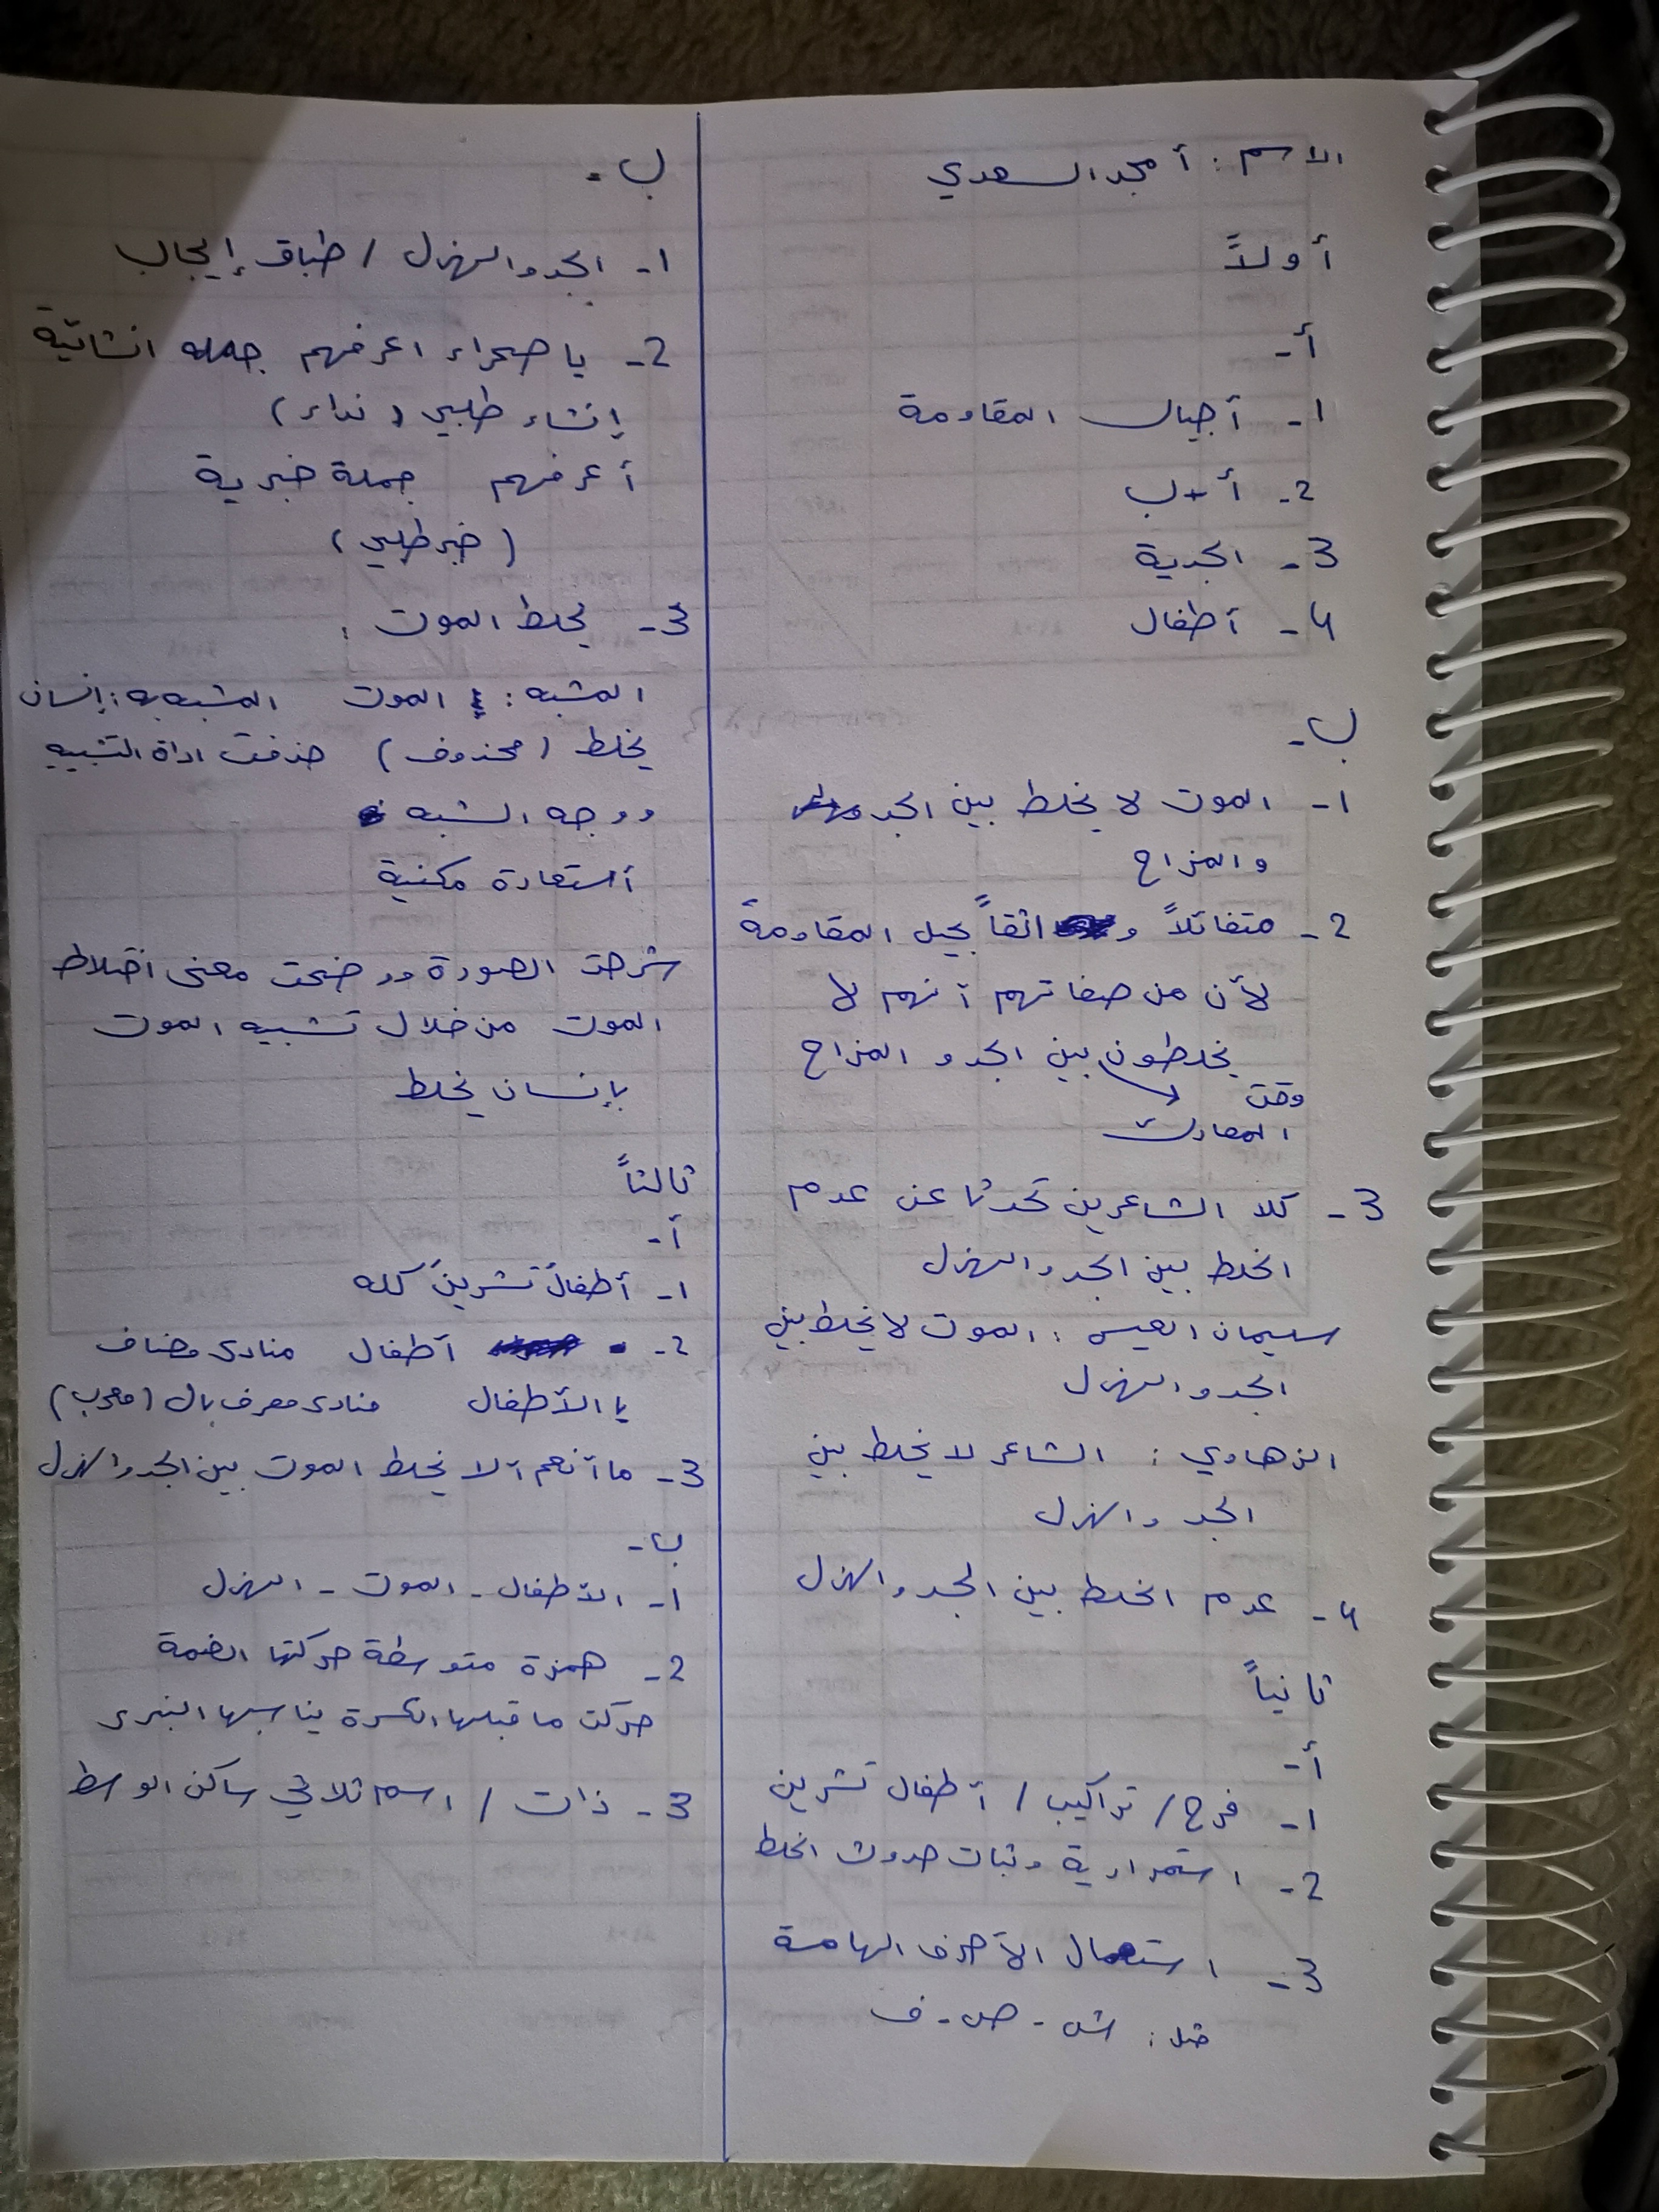 الاسم : أمجد السعدي
أولاً
أ-
1- أجيال المقاومة
2- أ + ب
3- الجدية
4- أطفال
ب-
1- الموت لا يخلط بين الجد
والمزاح
2- متفائلاً و اثقاً بجيل المقاومة
لأن من صفاتهم أنهم لا
يخلطون بين الجد و المزاح
وقت
المعارك
3- كلا الشاعرين تحدثا عن عدم
الخلط بين الجد والهزل
سليمان العيسى : الموت لا يخلط بين
الجد والهزل
الزهاوي : الشاعر لا يخلط بين
الجد والهزل
4- عدم الخلط بين الجد والهزل
ثانياً
أ-
1- فرح / تراكيب / أطفال تشرين
2- استمرارية وثبات حدوث الخلط
3- استعمال الأحرف الهامسة
مثل : ش - ص - ف
ب-
1- الجد والهزل / طباق إيجاب
2- يا صحراء اعرفهم جمله انشائية
إنشاء طلبي (نداء)
أعرفهم جملة خبرية
(خبر طلبي)
3- يخلط الموت :
المشبه : الموت المشبه به : إنسان
يخلط (محذوف) حذفت اداة التشبيه
ووجه الشبه
أستعارة مكنية
شرحت الصورة ووضحت معنى اختلاط
الموت من خلال تشبيه الموت
بإنسان يخلط
ثالثاً
أ-
1- أطفالَ تشرينَ كله
2- أطفال منادى مضاف
يا الأطفال منادى معرف بال (معرب)
3- ما أنعم ألا يخلط الموت بين الجد والهزل
ب-
1- الأطفال - الموت - الهزل
2- همزة متوسطة حركتها الضمة
حركت ما قبلها الكسرة يناسبها النبرى
3- ذات / اسم ثلاثي ساكن الوسط